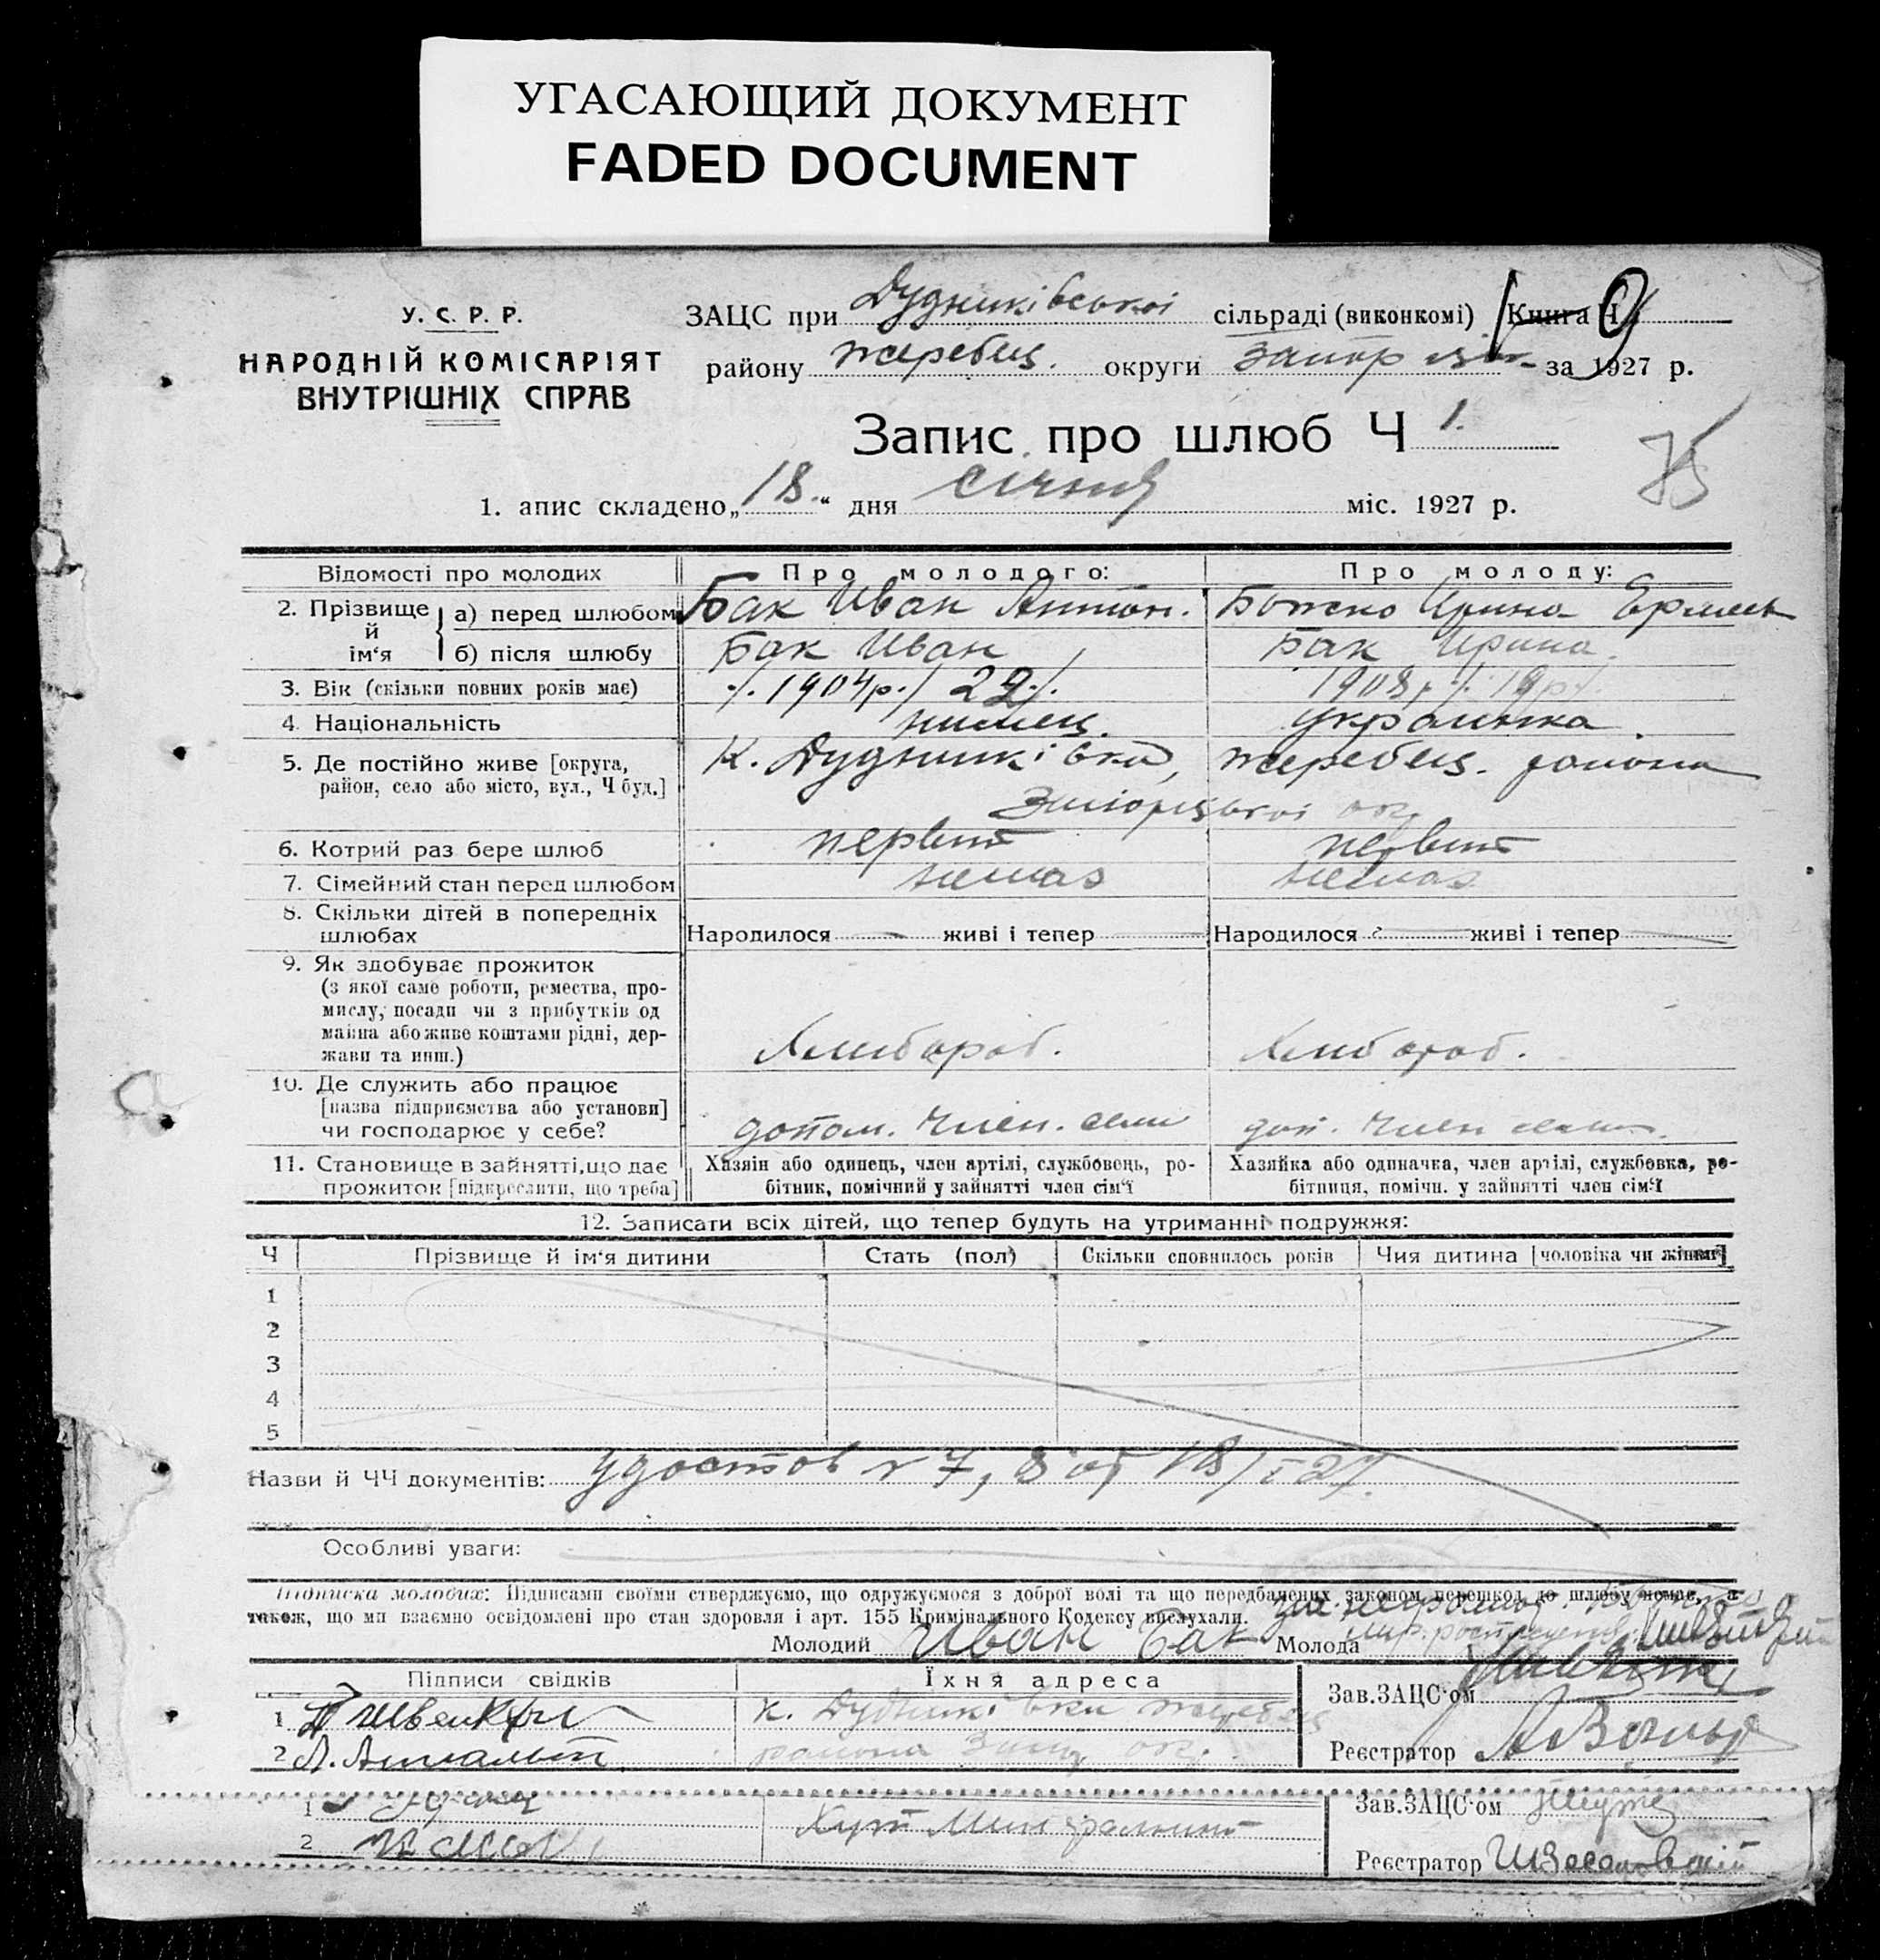 УГАСАЮЩИЙ ДОКУМЕНТ
FADED DOCUMENT
У. С. Р. Р.
НАРОДНІЙ КОМІСАРІЯТ
ВНУТРІШНІХ СПРАВ
ЗАЦС при Дудниківської сільраді (виконкомі) Книга Ч. 9
району Жеребец. округи Запор за 1927 р.
Запис про шлюб Ч 1.
75
1. апис складено „18“ дня січня міс. 1927 р.
Відомості про молодих Про молодого: Про молоду:
2. Прізвище й ім‘я а) перед шлюбом Бак Иван Антон. Божко Ирина
б) після шлюбу Бак Иван Бак Ирина
3. Вік (скільки повних років має) 1904р. / 22 / 1908р / 19р /
4. Національність нимец. украинка
5. Де постійно живе [округа, К. Дудниківка, жеребец. района
район, село або місто, вул., Ч буд.]
6. Котрий раз бере шлюб первит первит
7. Сімейний стан перед шлюбом
8. Скільки дітей в попередніх
шлюбах Народилося — живі і тепер — Народилося — живі і тепер —
9. Як здобуває прожиток
(з якої саме роботи, ремества, про-
мислу, посади чи з прибутків од
майна або живе коштами рідні, дер-
жави та инш.) Хлибороб. Хлибороб.
10. Де служить або працює
[назва підприємства або установи]
чи господарює у себе? допом. член. семи доп. член
11. Становище в зайнятті, що дає Хазяін або одинець, член артілі, службовець, ро- Хазяйка або одиначка, член артілі, службовка, ро-
прожиток [підкреслити, що треба] бітник, помічний у зайнятті член сім‘ї бітниця, помічн. у зайнятті член сім‘ї
12. Записати всіх дітей, що тепер будуть на утриманні подружжя:
Ч Прізвище й ім‘я дитини Стать (пол) Скільки сповнилось років Чия дитина [чоловіка чи жінки]
1
2
3
4
5
Назви й ЧЧ документів: удостов № 7, 8 от 18/I 27.
Особливі уваги:
Підписка молодих: Підписами своїми стверджуємо, що одружуємося з доброї волі та що передбачених законом перешкод до шлюбу немає, а
також, що ми взаємно освідомлені про стан здоровля і арт. 155 Кримінального Кодексу вислухали.
Молодий Иван Бак Молода
Підписи свідків Їхня адреса Зав.ЗАЦС‘ом
1 К. Дудниківки жеребец
2 района Запор ок. Реєстратор
1 Хут Зав.ЗАЦС‘ом
2 Реєстратор